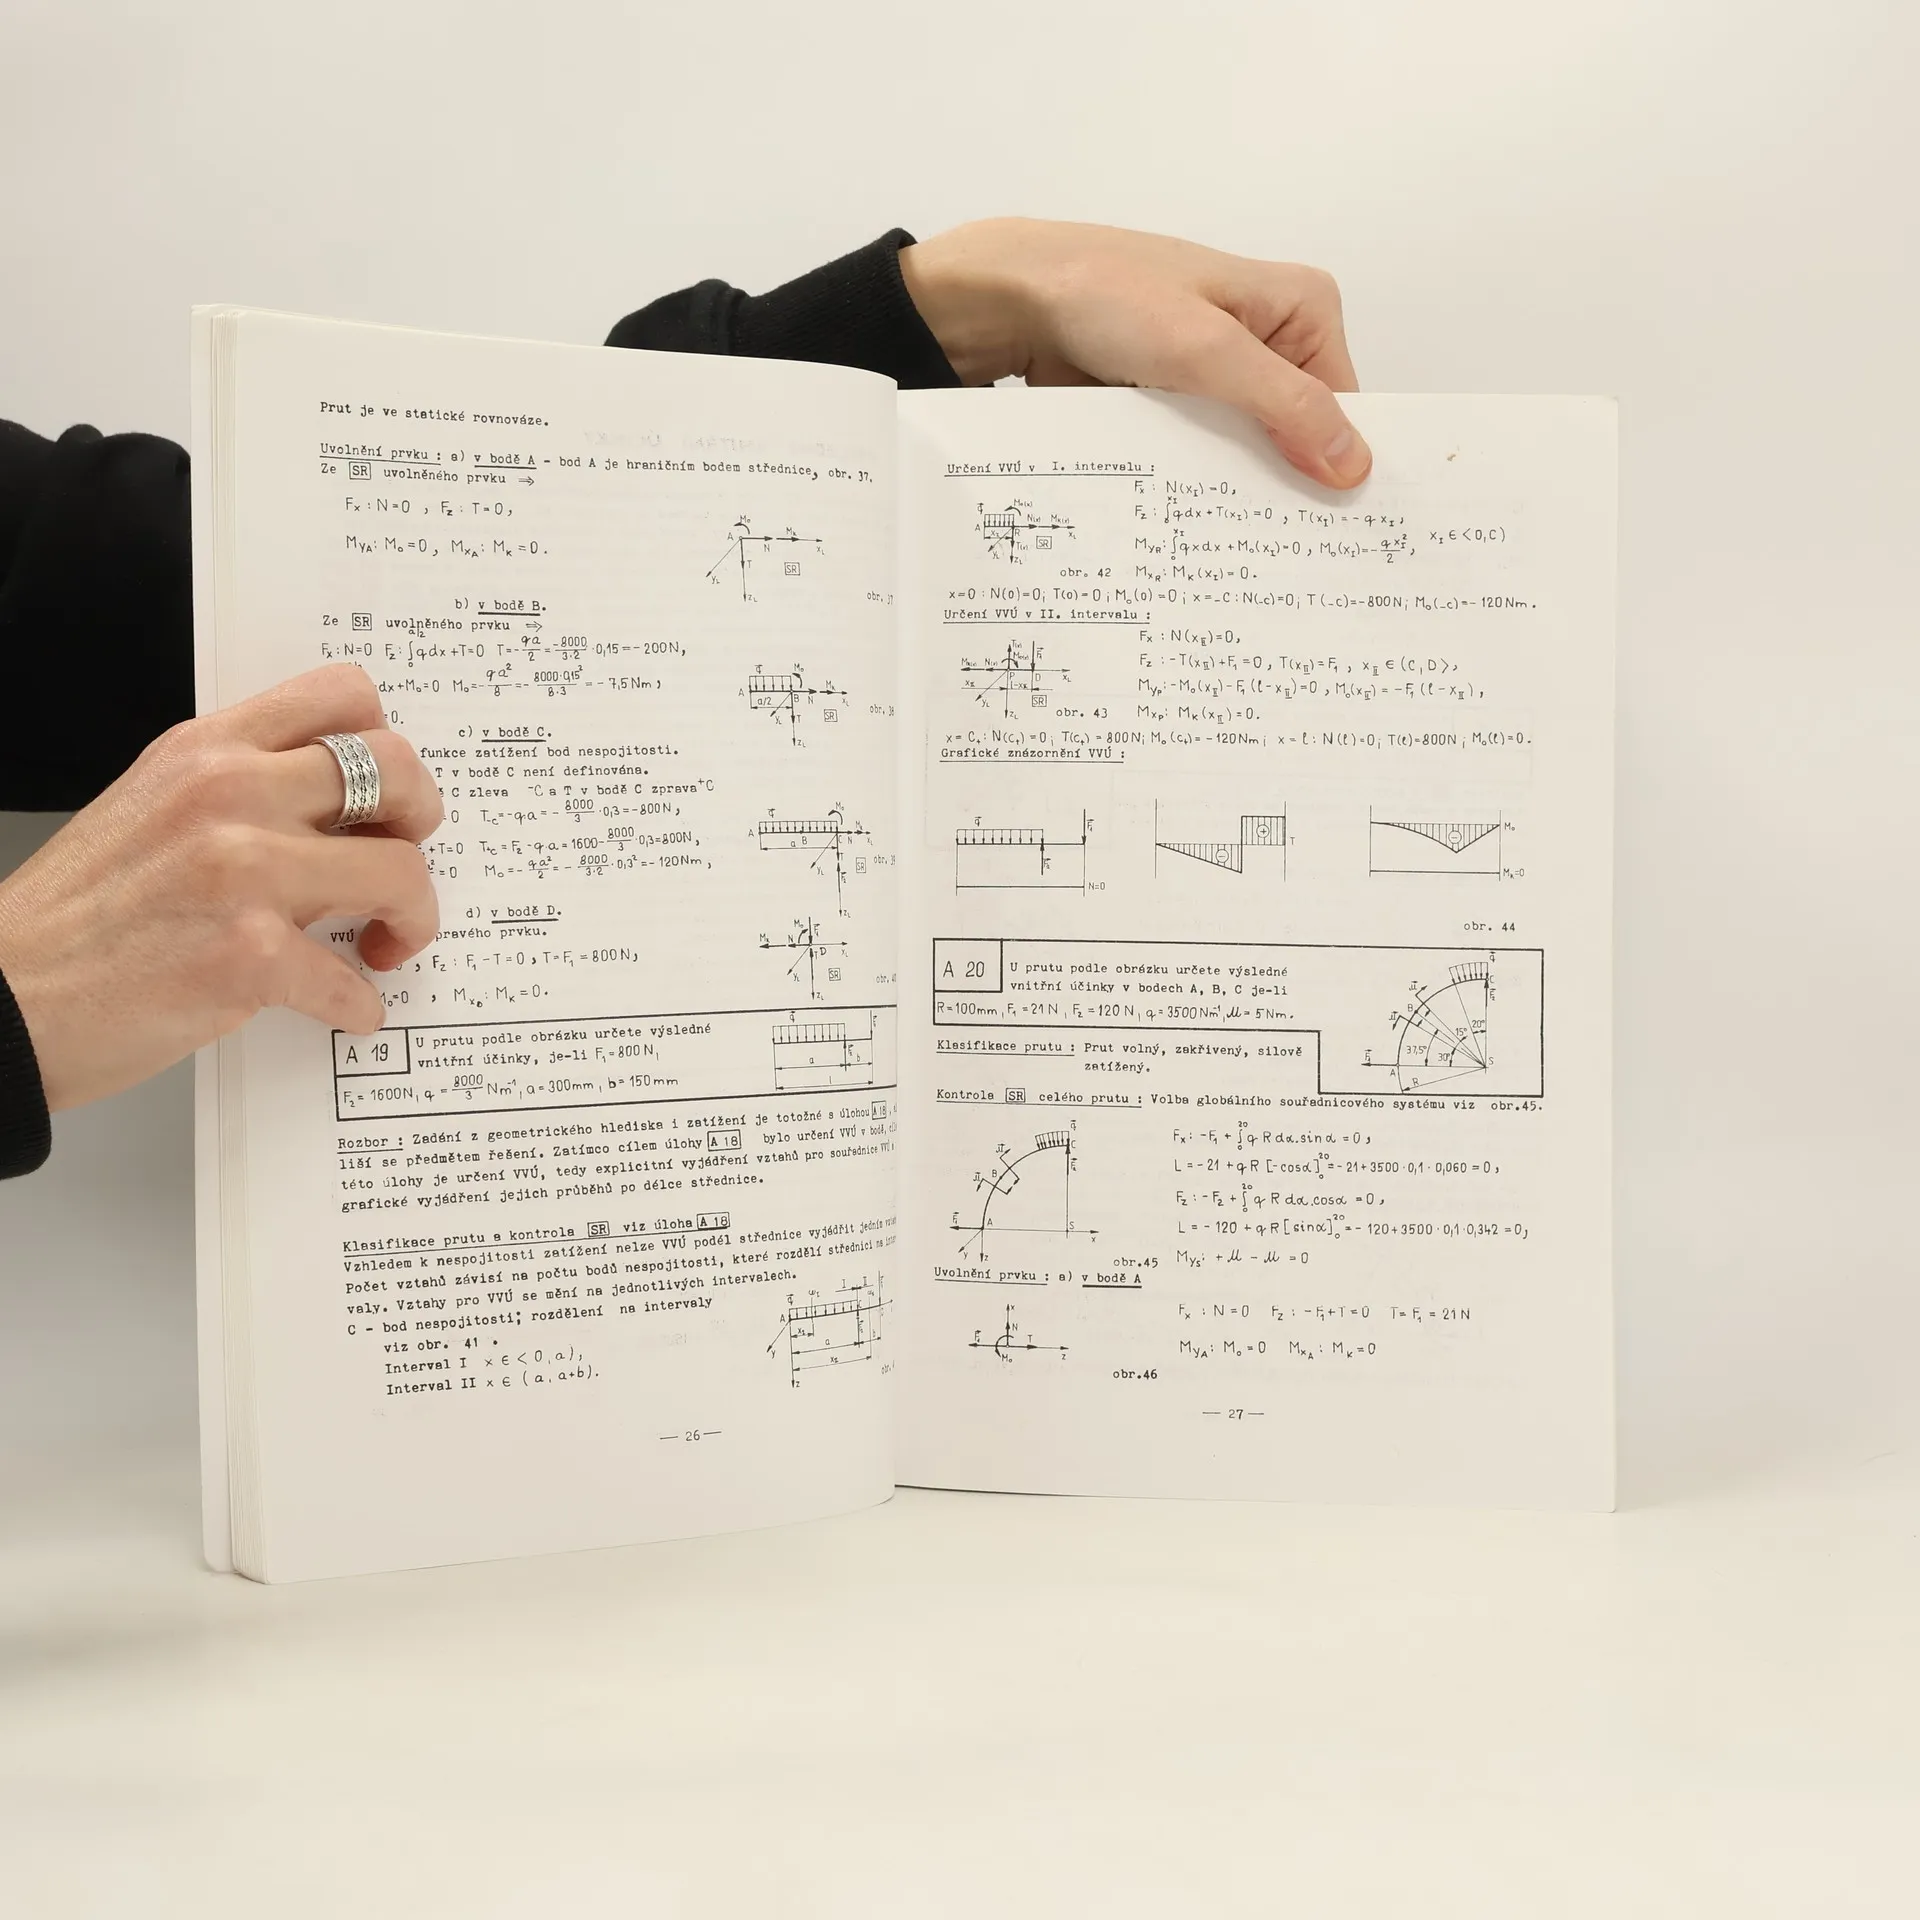 Prut je ve statické rovnováze.
Uvolnění prvku : a) v bodě A - bod A je hraničním bodem střednice, obr. 37.
Ze SR uvolněného prvku ⇒
Fx : N=0 , Fz : T=0,
MyA: Mo=0, MxA: Mk=0.
b) v bodě B.
Ze SR uvolněného prvku ⇒
Fx: N=0 Fz: ∫qdx+T=0 T=-qa/2=-8000/3·2·0,15=-200N,
dx+Mo=0 Mo=-qa²/8=-8000·0,15²/8·3=-7,5Nm,
=0.
c) v bodě C.
funkce zatížení bod nespojitosti.
T v bodě C není definována.
C zleva ⁻C a T v bodě C zprava ⁺C
0 T-c=-qa=-8000/3·0,3=-800N,
+T=0 T+c=F2-q·a=1600-8000/3·0,3=800N,
=0 Mo=-qa²/2=-8000/3·2·0,3²=-120Nm,
d) v bodě D.
VVÚ pravého prvku.
, Fz : F1-T=0, T=F1=800N,
Mo=0 , MxD: Mk=0.
A 19
U prutu podle obrázku určete výsledné
vnitřní účinky, je-li F1=800N,
F2=1600N, q=8000/3 Nm⁻¹, a=300mm, b=150mm
Rozbor : Zadání z geometrického hlediska i zatížení je totožné s úlohou A 18,
liší se předmětem řešení. Zatímco cílem úlohy A 18 bylo určení VVÚ v bodě,
této úlohy je určení VVÚ, tedy explicitní vyjádření vztahů pro souřadnice VVÚ
grafické vyjádření jejich průběhů po délce střednice.
Klasifikace prutu a kontrola SR viz úloha A 18
Vzhledem k nespojitosti zatížení nelze VVÚ podél střednice vyjádřit jedním
Počet vztahů závisí na počtu bodů nespojitosti, které rozdělí střednici na
valy. Vztahy pro VVÚ se mění na jednotlivých intervalech.
C - bod nespojitosti; rozdělení na intervaly
viz obr. 41 .
Interval I x∈<0,a),
Interval II x∈(a,a+b).
— 26 —
Určení VVÚ v I. intervalu :
Fx : N(xI)=0,
Fz : ∫qdx+T(xI)=0 , T(xI)=-qxI,
MyR: ∫qxdx+Mo(xI)=0, Mo(xI)=-qxI²/2, xI∈<0,C)
obr. 42 MxR: Mk(xI)=0.
x=0 : N(0)=0; T(0)=0; Mo(0)=0; x=-C : N(-c)=0; T(-c)=-800N; Mo(-c)=-120Nm.
Určení VVÚ v II. intervalu :
Fx : N(xII)=0,
Fz : -T(xII)+F1=0, T(xII)=F1, xII∈(C,D>,
MyP: -Mo(xII)-F1(l-xII)=0, Mo(xII)=-F1(l-xII),
obr. 43 MxP: Mk(xII)=0.
x=C+: N(C+)=0; T(C+)=800N; Mo(C+)=-120Nm; x=l: N(l)=0; T(l)=800N; Mo(l)=0.
Grafické znázornění VVÚ :
N=0
T
Mo
Mk=0
obr. 44
A 20
U prutu podle obrázku určete výsledné
vnitřní účinky v bodech A, B, C je-li
R=100mm, F1=21N, F2=120N, q=3500Nm⁻¹, M=5Nm.
Klasifikace prutu : Prut volný, zakřivený, silově
zatížený.
37,5° 30° 15° 20°
Kontrola SR celého prutu : Volba globálního souřadnicového systému viz obr.45.
Fx: -F1+∫qRdα.sinα=0,
L=-21+qR[-cosα]=-21+3500·0,1·0,060=0,
Fz: -F2+∫qRdα.cosα=0,
L=-120+qR[sinα]=-120+3500·0,1·0,342=0,
obr.45 Mys: +M-M=0
Uvolnění prvku : a) v bodě A
Fx : N=0 Fz : -F1+T=0 T=F1=21N
MyA: Mo=0 MxA: Mk=0
obr.46
— 27 —